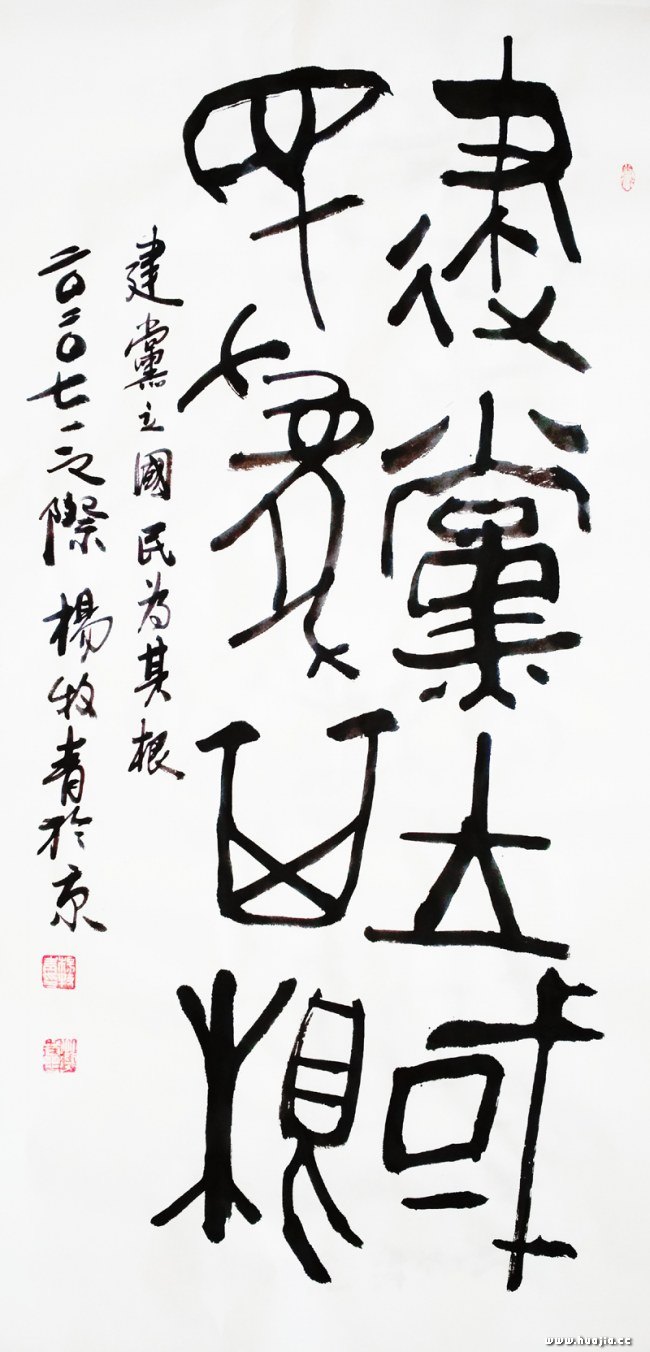 建黨立國
民為其根
建黨立國民為其根
二〇二〇七一之際楊牧青於京
www.huajia.cc